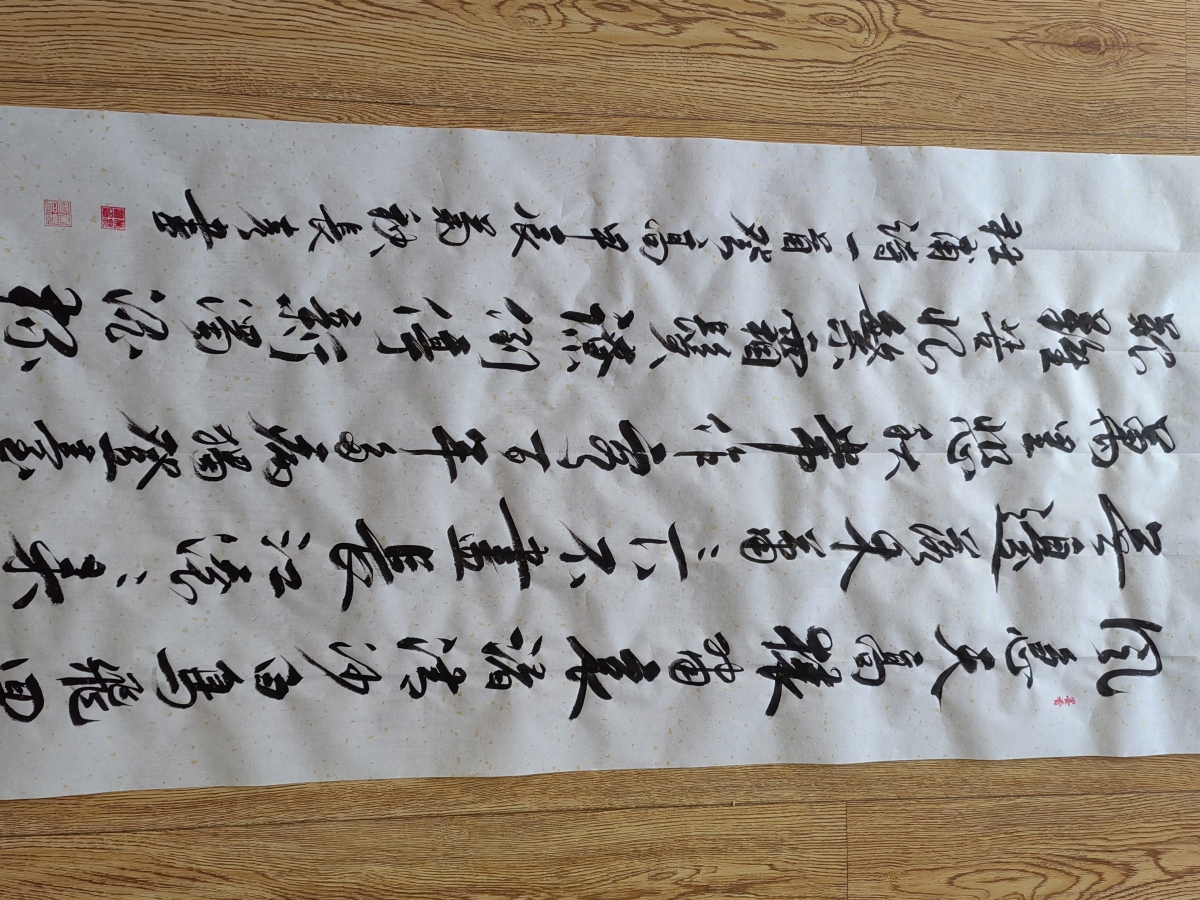 風急天高猿嘯哀渚清沙白鳥飛回
無邊落木蕭〻下不盡長江滾〻來
萬里悲秋常作客百年多病獨登臺
艱難苦恨繁霜鬢潦倒停新濁酒杯
杜甫詩一首登高甲辰菊秋長書